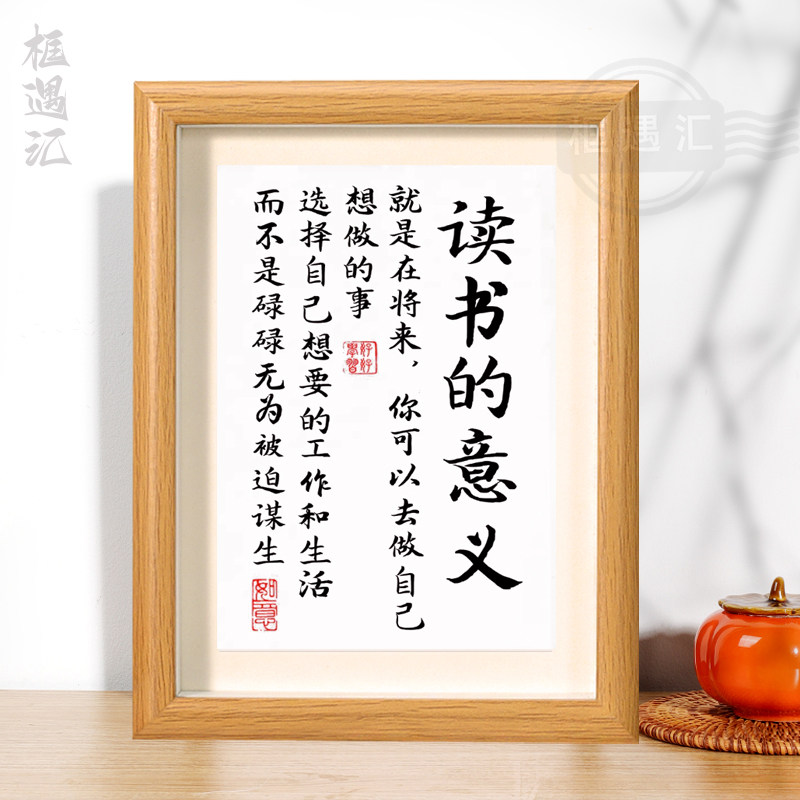 读书的意义
就是在将来，你可以去做自己
想做的事
好好學習
选择自己想要的工作和生活
而不是碌碌无为被迫谋生
如意
框遇汇
框遇汇